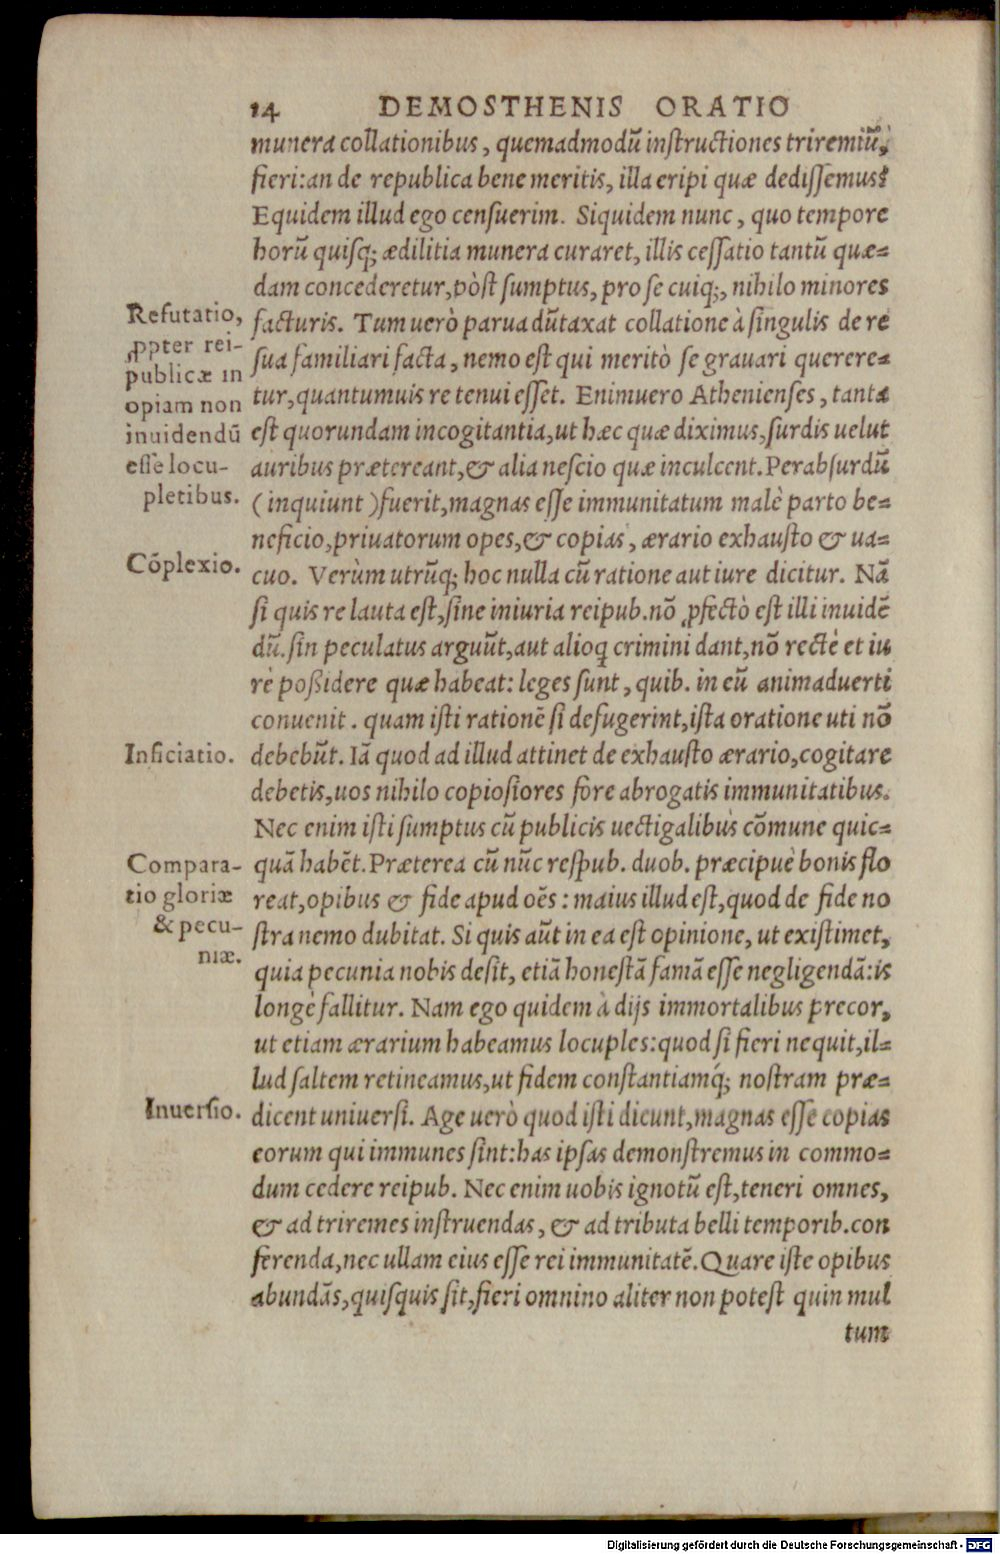 14 DEMOSTHENIS ORATIO
munera collationibus, quemadmodũ instructiones triremiũ,
fieri: an de republica bene meritis, illa eripi quæ dedissemus?
Equidem illud ego censuerim. Siquidem nunc, quo tempore
horũ quisq; ædilitia munera curaret, illis cessatio tantũ quæ=
dam concederetur, pòst sumptus, pro se cuiq;, nihilo minores
facturis. Tum uerò parua dũtaxat collatione à singulis de re
sua familiari facta, nemo est qui meritò se grauari querere=
tur, quantumuis re tenui esset. Enimuero Athenienses, tanta
est quorundam incogitantia, ut hæc quæ diximus, surdis uelut
auribus prætereant, & alia nescio quæ inculcent. Perabsurdũ
(inquiunt) fuerit, magnas esse immunitatum malè parto be=
neficio, priuatorum opes, & copias, ærario exhausto & ua=
cuo. Verùm utrũq; hoc nulla cũ ratione aut iure dicitur. Nã
si quis re lauta est, sine iniuria reipub. nõ ꝓfectò est illi inuidẽ
dũ. sin peculatus arguũt, aut alioq crimini dant, nõ rectè et iu
rè poßidere quæ habeat: leges sunt, quib. in eũ animaduerti
conuenit. quam isti rationẽ si defugerint, ista oratione uti nõ
debebũt. Iã quod ad illud attinet de exhausto ærario, cogitare
debetis, uos nihilo copiosiores fore abrogatis immunitatibus.
Nec enim isti sumptus cũ publicis uectigalibus cõmune quic=
quã habẽt. Præterea cũ nũc respub. duob. præcipuè bonis flo
reat, opibus & fide apud oẽs: maius illud est, quod de fide no
stra nemo dubitat. Si quis aũt in ea est opinione, ut existimet,
quia pecunia nobis desit, etiã honestã famã esse negligendã: is
longè fallitur. Nam ego quidem à dijs immortalibus precor,
ut etiam ærarium habeamus locuples: quod si fieri nequit, il=
lud saltem retineamus, ut fidem constantiamq́; nostram præ=
dicent uniuersi. Age uerò quod isti dicunt, magnas esse copias
eorum qui immunes sint: has ipsas demonstremus in commo=
dum cedere reipub. Nec enim uobis ignotũ est, teneri omnes,
& ad triremes instruendas, & ad tributa belli temporib. con
ferenda, nec ullam eius esse rei immunitatẽ. Quare iste opibus
abundãs, quisquis sit, fieri omnino aliter non potest quin mul
tum
Refutatio,
ꝓpter rei-
publicæ in
opiam non
inuidendũ
esse locu-
pletibus.
Cõplexio.
Inficiatio.
Compara-
tio gloriæ
& pecu-
niæ.
Inuersio.
Digitalisierung gefördert durch die Deutsche Forschungsgemeinschaft - DFG